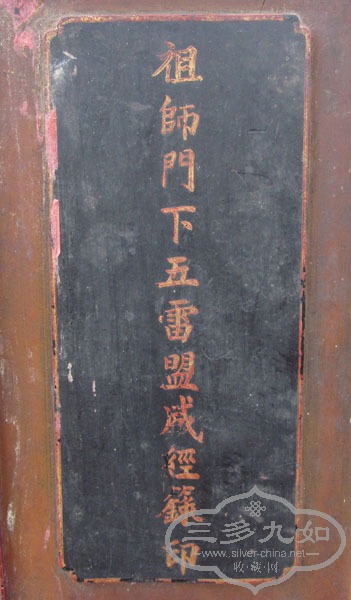 祖師門下五雷盟威經籙印
三多九如
www.silver-china.net
收藏网